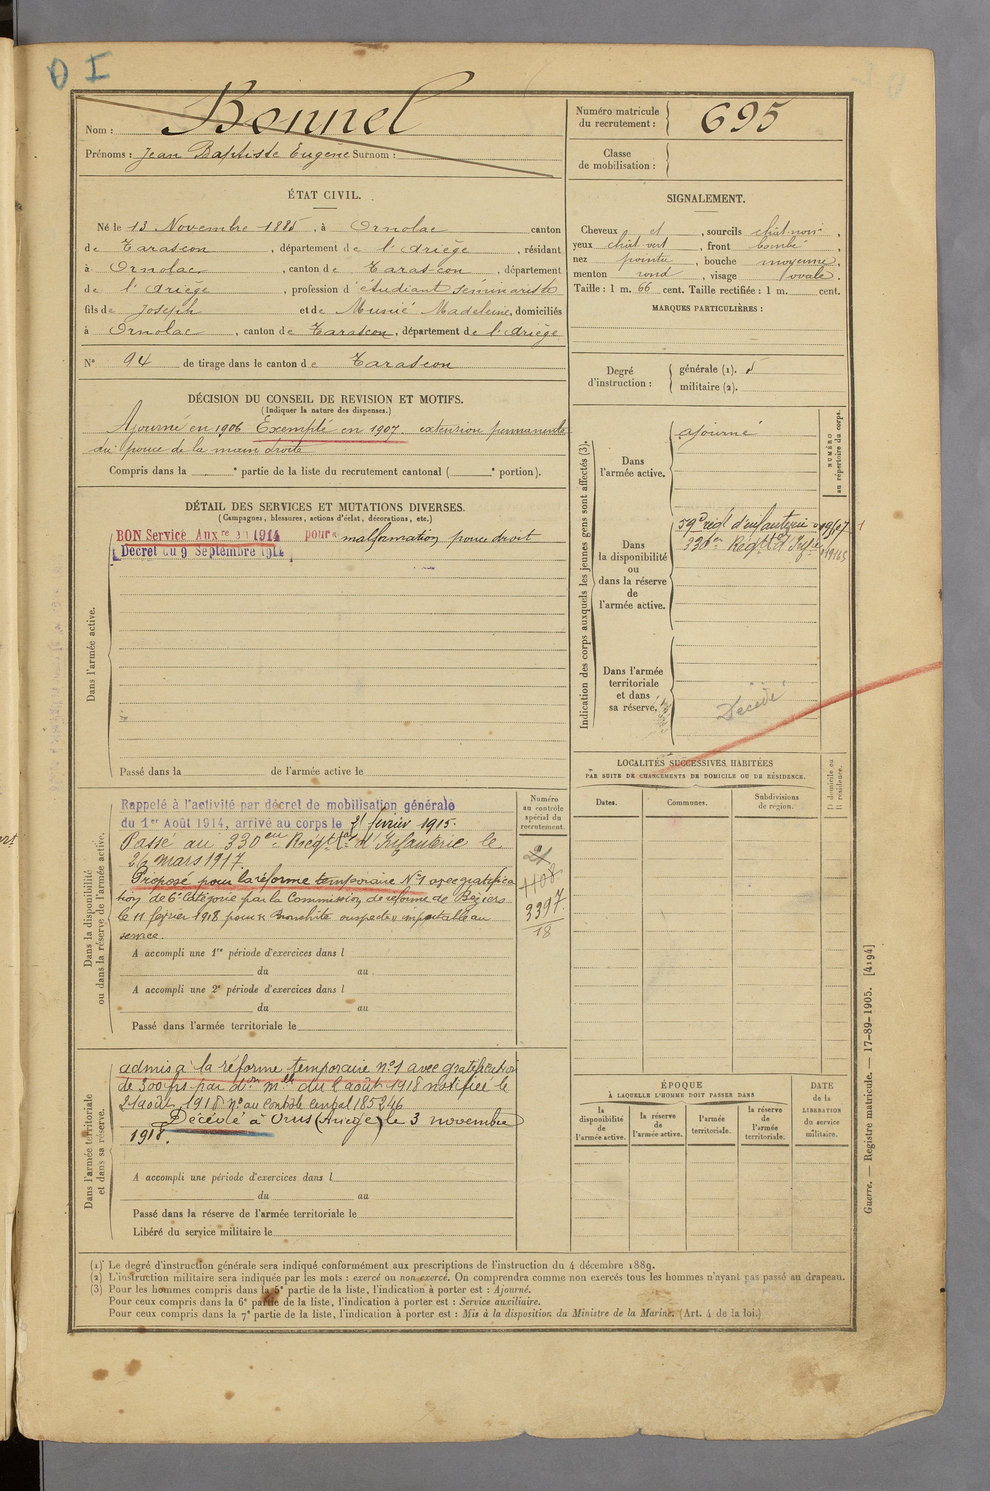 O I
Nom : Bonnel
Prénoms : Jean Baptiste Eugène Surnom :
Numéro matricule
du recrutement : 695
Classe
de mobilisation :
ÉTAT CIVIL.
Né le 13 Novembre 1885, à Ornolac canton
de Tarascon, département de l'Ariège, résidant
à Ornolac, canton de Tarascon, département
de l'Ariège, profession d'étudiant séminariste
fils de Joseph et de Munié Madeleine, domiciliés
à Ornolac, canton de Tarascon, département de l'Ariège
N° 94 de tirage dans le canton de Tarascon
SIGNALEMENT.
Cheveux et, sourcils chât-noir,
yeux chât vert, front bombé,
nez pointu, bouche moyenne,
menton rond, visage ovale.
Taille : 1 m. 66 cent. Taille rectifiée : 1 m. cent.
MARQUES PARTICULIÈRES :
Degré
d'instruction :
générale (1). 5
militaire (2).
DÉCISION DU CONSEIL DE REVISION ET MOTIFS.
(Indiquer la nature des dispenses.)
Ajourné en 1906 Exempté en 1907 extension permanente
du pouce de la main droite
Compris dans la e partie de la liste du recrutement cantonal ( e portion).
DÉTAIL DES SERVICES ET MUTATIONS DIVERSES.
(Campagnes, blessures, actions d'éclat, décorations, etc.)
BON Service Aux re en 1914 pour malformation pouce droit
Décret du 9 Septembre 1914
Dans l'armée active.
Passé dans la de l'armée active le
Indication des corps auxquels les jeunes gens sont affectés (3).
NUMÉRO
au répertoire du corps.
Dans
l'armée active.
ajourné
Dans
la disponibilité
ou
dans la réserve
de
l'armée active.
59e régt d'infanterie
330en Régt d'Infie
Dans l'armée
territoriale
et dans
sa réserve.
Décédé
LOCALITÉS SUCCESSIVES HABITÉES
PAR SUITE DE CHANGEMENTS DE DOMICILE OU DE RÉSIDENCE.
Dates.
Communes.
Subdivisions
de région.
D domicile ou
R résidence.
Dans la disponibilité
ou dans la réserve de l'armée active.
Numéro
au contrôle
spécial du
recrutement.
Rappelé à l'activité par décret de mobilisation générale
du 1er Août 1914, arrivé au corps le 21 février 1915.
Passé au 330en Régt d'Infanterie le
26 mars 1917.
Proposé pour la réforme temporaire N°1 avec gratifica
tion de 6e Catégorie par la Commission de réforme de Béziers
le 11 février 1918 pour Bronchite suspecte
service.
1108
3397
18
A accompli une 1re période d'exercices dans l
du au
A accompli une 2e période d'exercices dans l
du au
Passé dans l'armée territoriale le
Dans l'armée territoriale
et dans sa réserve.
admis à la réforme temporaire n°1 avec gratification
de 300 frs par don mlle du 2 août 1918 notifiée le
21 août 1918 n° au Contrôle Central 185246
Décédé à Urus (Ariège) le 3 novembre
1918.
A accompli une période d'exercices dans l
du au
Passé dans la réserve de l'armée territoriale le
Libéré du service militaire le
ÉPOQUE
À LAQUELLE L'HOMME DOIT PASSER DANS
la
disponibilité
de
l'armée active.
la réserve
de
l'armée active.
l'armée
territoriale.
la réserve
de
l'armée
territoriale.
DATE
de la
LIBÉRATION
du service
militaire.
(1) Le degré d'instruction générale sera indiqué conformément aux prescriptions de l'instruction du 4 décembre 1889.
(2) L'instruction militaire sera indiquée par les mots : exercé ou non exercé. On comprendra comme non exercés tous les hommes n'ayant pas passé au drapeau.
(3) Pour les hommes compris dans la 5e partie de la liste, l'indication à porter est : Ajourné.
Pour ceux compris dans la 6e partie de la liste, l'indication à porter est : Service auxiliaire.
Pour ceux compris dans la 7e partie de la liste, l'indication à porter est : Mis à la disposition du Ministre de la Marine. (Art. 4 de la loi.)
Guerre. — Registre matricule. — 17-89-1905. [4194]